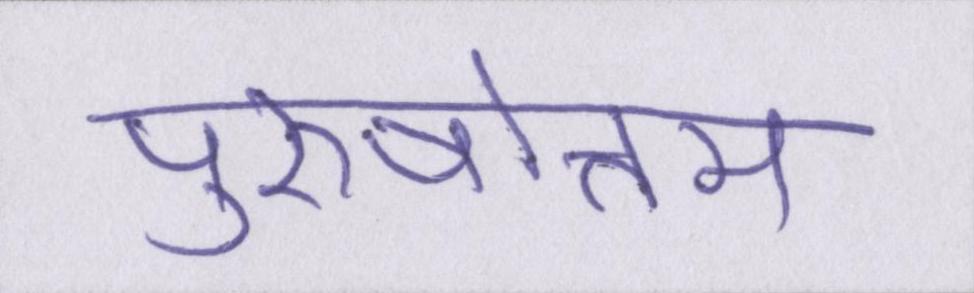 पुरुषोत्तम